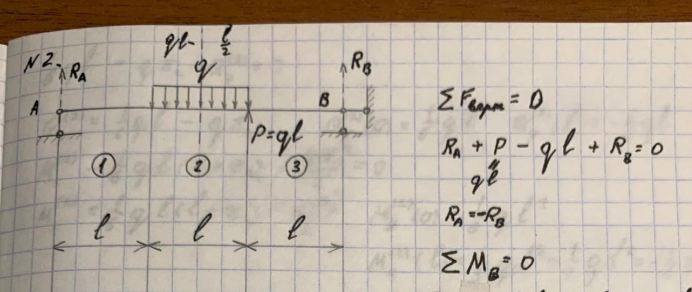 N2.
ql - l/2
q
R_A
R_B
A
B
P=ql
1 2 3
l l l
ΣF_верт = 0
R_A + P - ql + R_B = 0
ql
R_A = -R_B
ΣM_B = 0